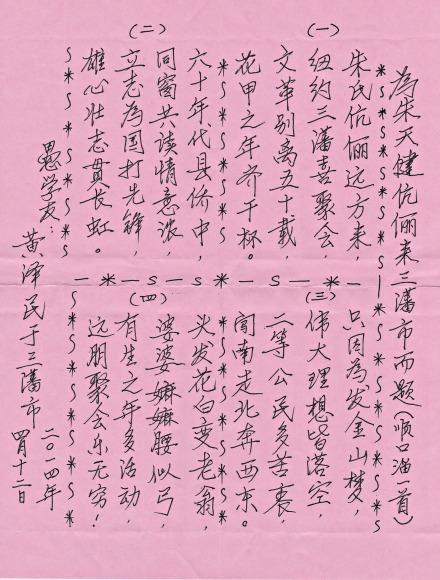 為朱天健伉俪来三藩市而题(顺口溜一首)
(一)
朱氏伉俪远方来,
纽约三藩喜聚会,
文革别离五十载,
花甲之年齐干杯。
(二)
六十年代县侨中,
同窗共读情意浓,
立志為国打先锋,
雄心壮志贯长虹。
(三)
只因為发金山梦,
伟大理想皆落空
二等公民多苦衷,
闯南走北奔西东。
(四)
头发花白变老翁,
婆婆嫲嫲腰似弓,
有生之年多活动,
远朋聚会乐无穷!
愚学友:
黄泽民于三藩市
二〇一四年
四月十二日